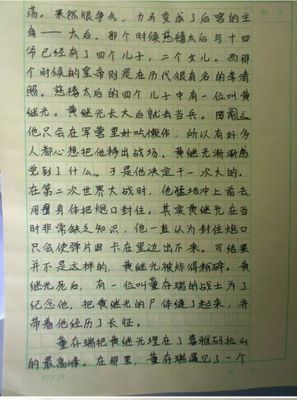 荡。果然很争气，力马变成了后宫的主
角——太后。那个时候慈禧太后与十四
爷已经有了四个儿子，二个女儿。而那
个时候的皇帝则是在历代很有名的李清
照。慈禧太后的四个儿子中有一位叫黄
继光。黄继光长大后就去当兵。因
他只会在军营里好吃懒作，所以有好多
人都心想把他移出战场。黄继光渐渐感
觉到了什么。于是他决定干一次大的。
在第二次世界大战时，他猛地冲上前去，
用身体把炮口封住。其实黄继光在当
时非常缺乏知识，他一直认为封住炮口
只会使弹片卡在里边出不来。可结果
并不是这样的，黄继光被炸得粉碎。黄
继光死后，有一位叫董存瑞的战士为了
纪念他，把黄继光的尸体缝了起来，并
带着他经历了长征。
董存瑞把黄继光埋在了喜雅玛拉山
的最高峰。在那里，董存瑞遇见了一个